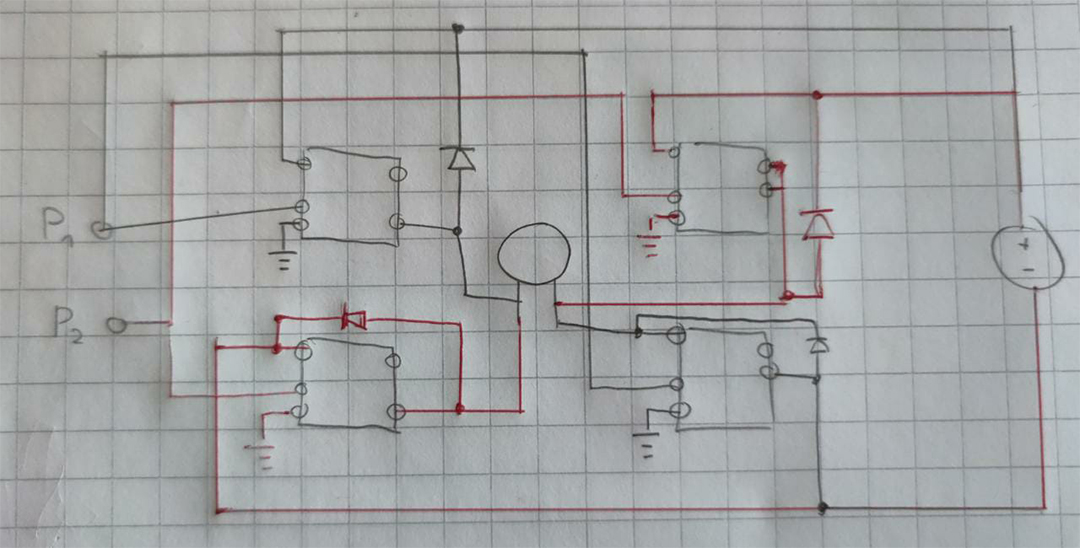 P₁
P₂
+
−